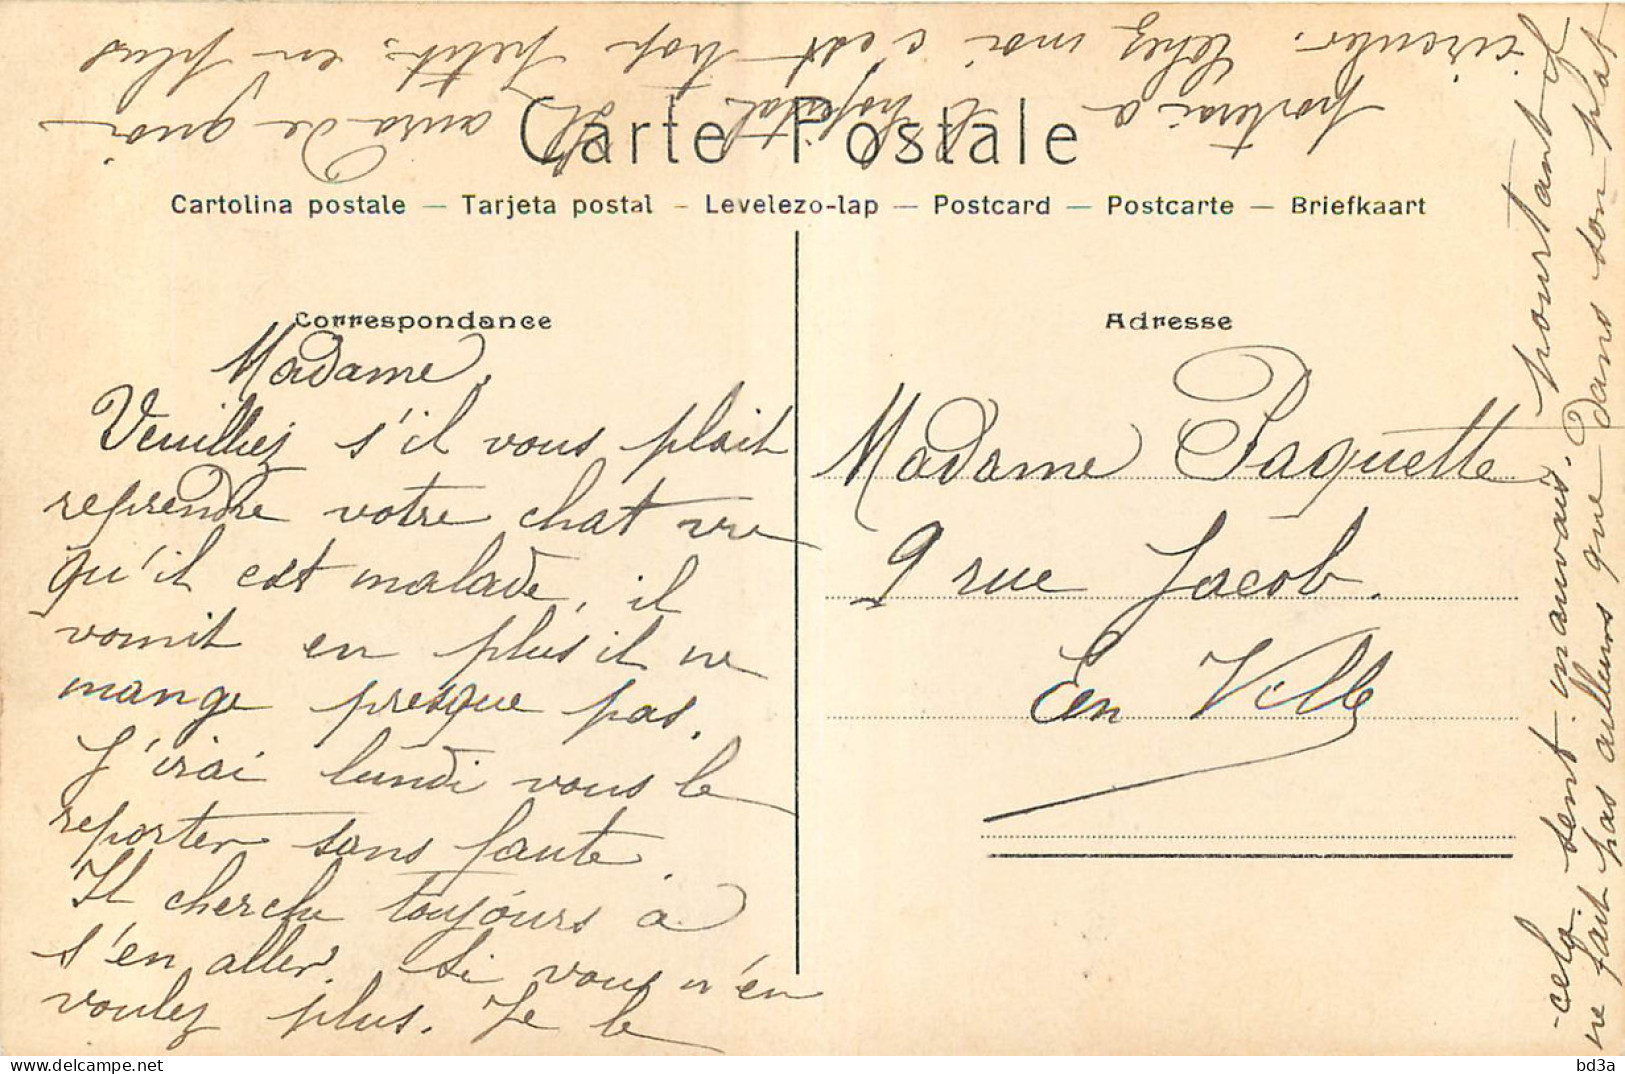 Carte Postale
Cartolina postale — Tarjeta postal — Levelezo-lap — Postcard — Postcarte — Briefkaart
Correspondance
Madame,
Veuillez s'il vous plait
reprendre votre chat vu
qu'il est malade, il
vomit en plus il ne
mange presque pas.
J'irai lundi vous le
reporter sans faute.
Il cherche toujours à
s'en aller. Si vous n'en
voulez plus. Je le
porterai a l'hopital. Il aura de quoi
circuler. Chez moi c'est trop petit. en plus
cela sent mauvais. pourtant il
ne fait pas ailleurs que dans son plat
Adresse
Madame Paquette
9 rue Jacob.
En Ville
bd3a